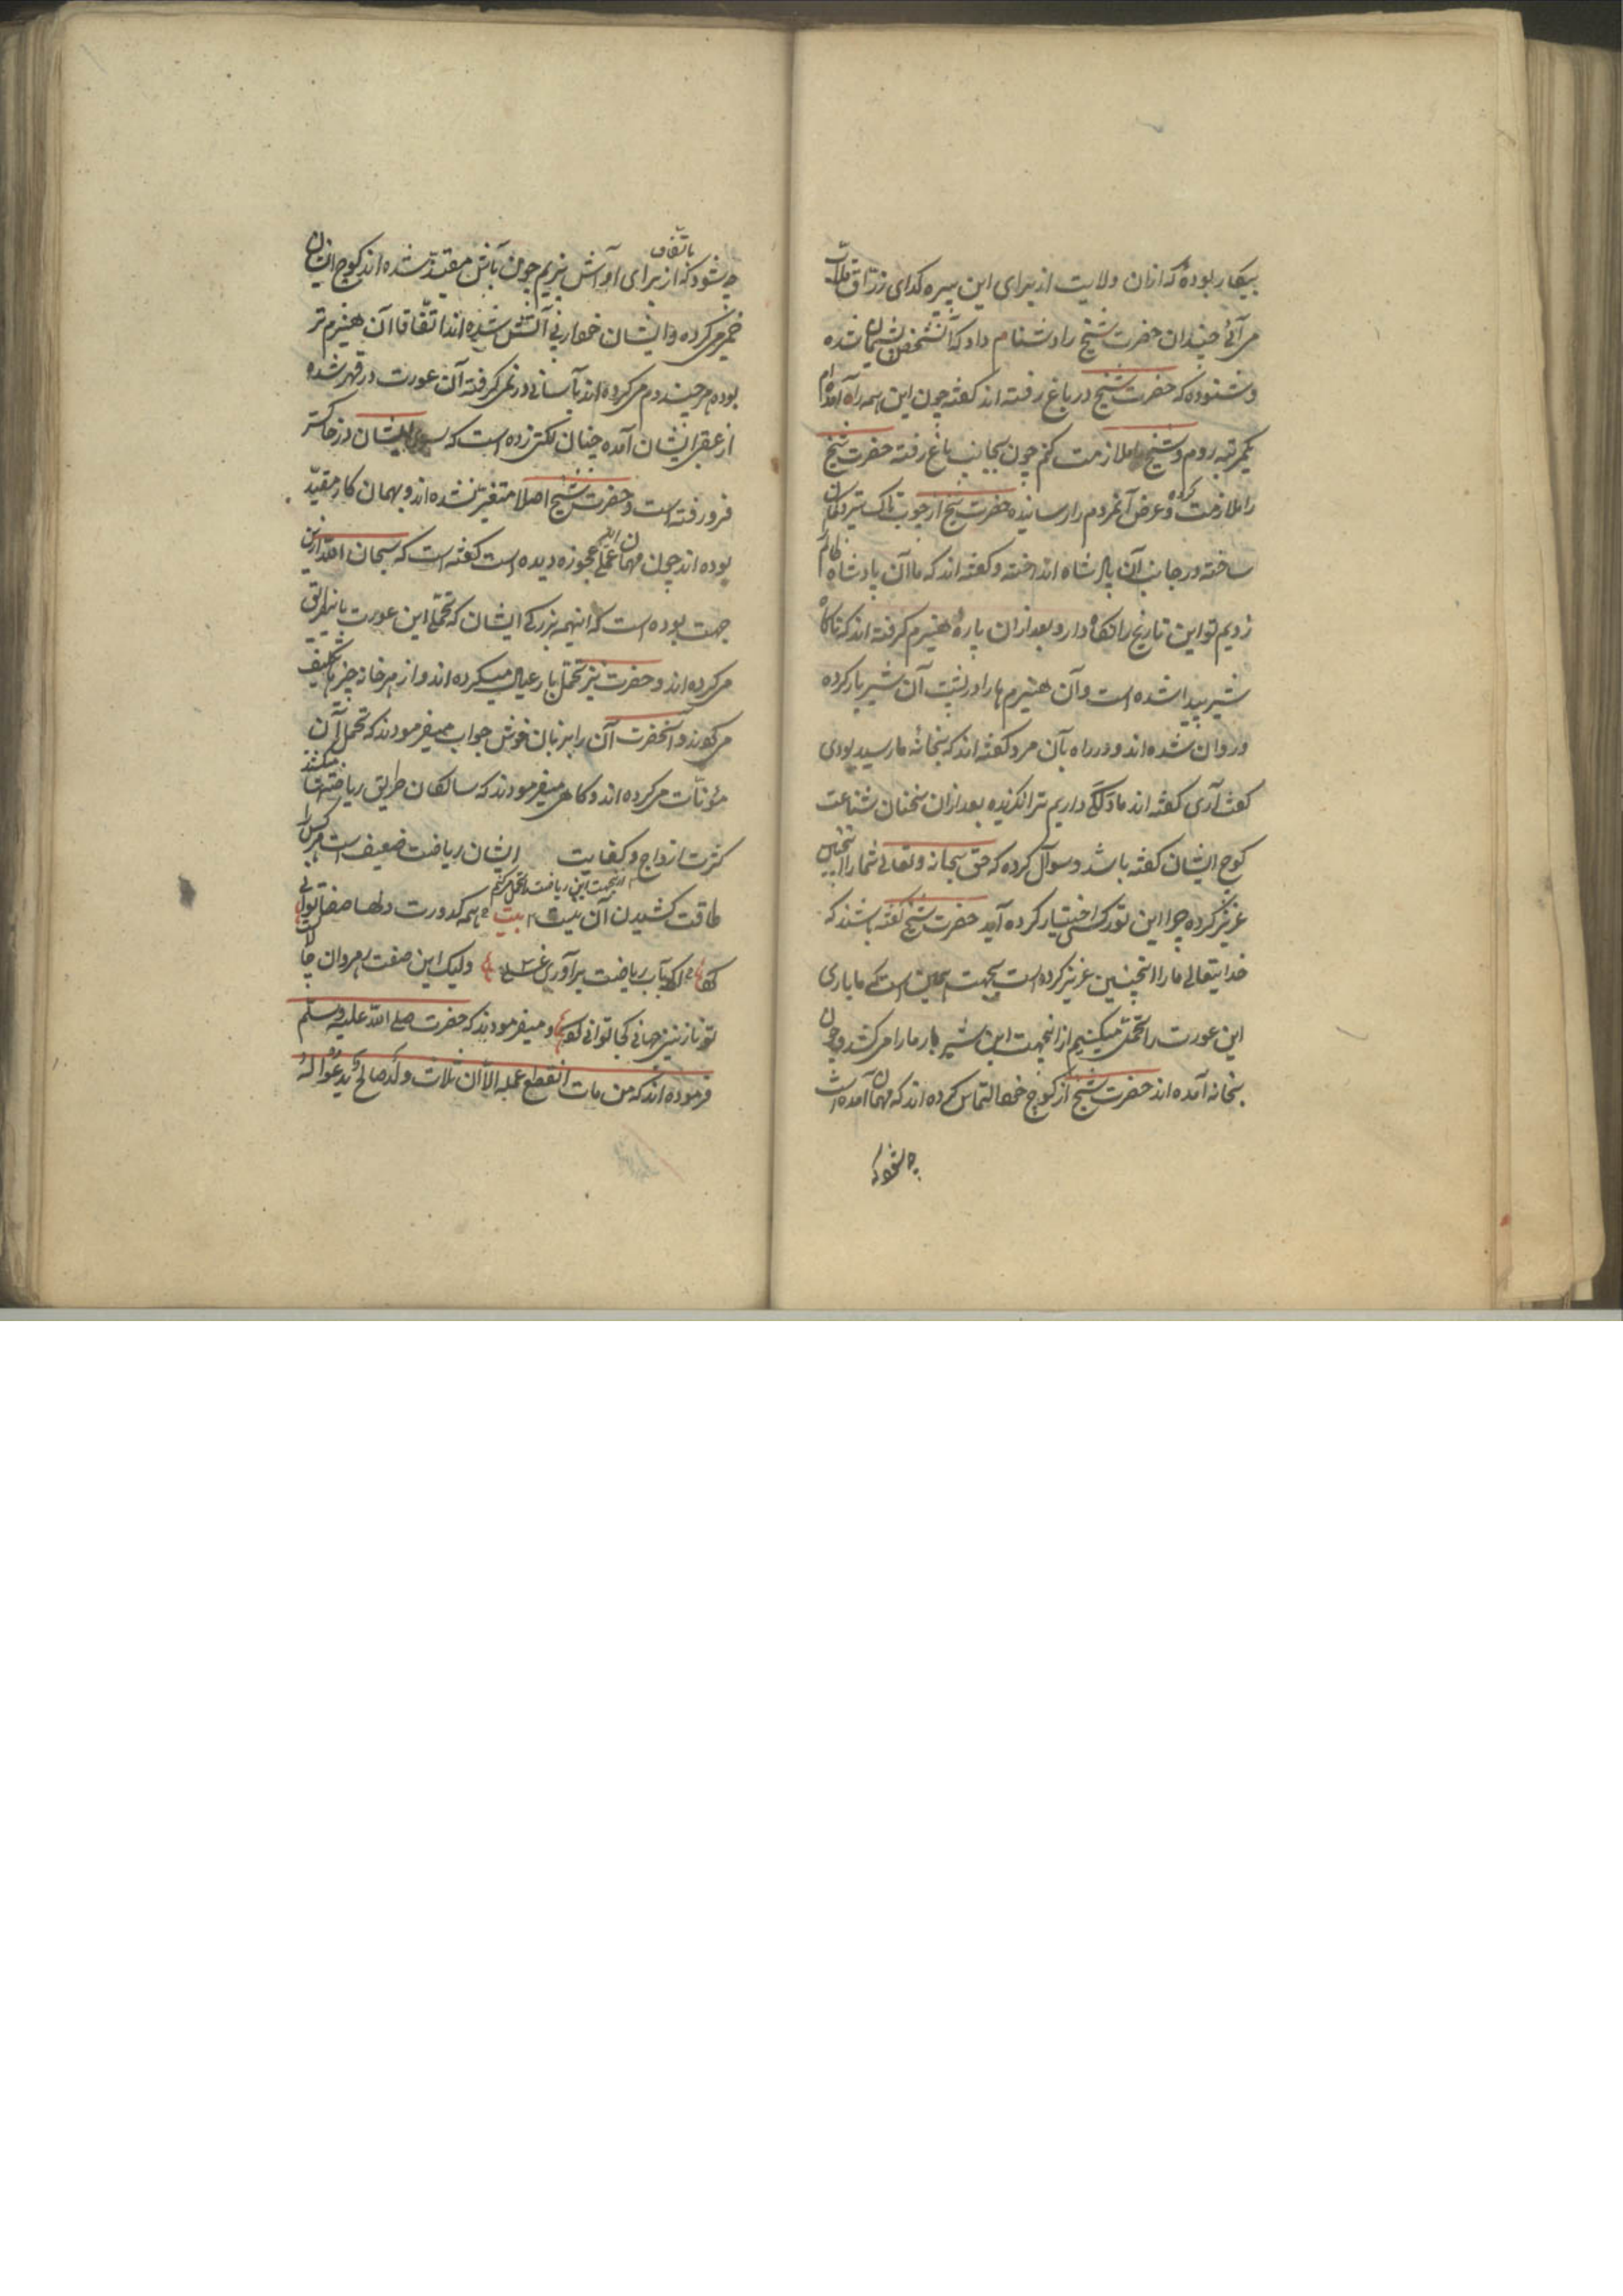 بیکار بوده که ازان ولایت از برای این پیره کدای زراق ملاقات
می آئی چندان حضرت شیخ را دشنام داد که آنشخص پشیمان شده
و شنوده که حضرت شیخ در باغ رفته اند کفته چون این همه راه آمده ام
یکمرتبه روم و شیخ را ملازمت کنم چون بجانب باغ رفته حضرت شیخ
را ملازمت کرده و عرض آنمردم را رسانیده حضرت شیخ از چوب تاک تیر و کمان
ساخته در جانب آن پادشاه انداخته و کفته اند که ما آن پادشاه ظالم را
زدیم تو این تاریخ را نکاه دار و بعد ازان پاره هیزم کرفته اند که ناکاه
شیر پیدا شده است و آن هیزم ها را در پشت آن شیر بار کرده
و روان شده اند و در راه بآن مرد کفته اند که بخانه ما رسیده بودی
کفت آری کفته اند ما سککی داریم ترا نکزیده بعد ازان سخنان شناعت
کوچ ایشان کفته باشد و سوال کرده که حق سبحانه و تعالی شما را اینچنین
عزیز کرده چرا این نوع کسی اختیار کرده آید حضرت شیخ کفته باشند که
خدایتعالی ما را اینچنین عزیز کرده است بجهت همین است که ما باری
این عورت را تحمل میکنیم از اینجهت این شیر بار ما را می کشد و چون
بخانه آمده اند حضرت شیخ از کوچ خود التماس کرده اند که مهمان آمده است
چه شود که
چه شود که از برای او آش پزیم باتفاق چون بآش مقید شده اند کوچ ایشان
خمیر می کرده و ایشان خود در پی آتش شده اند اتفاقا آن هیزم تر
بوده هر چند دم می کرده اند بآسانی در نمی کرفته آن عورت در قهر شده
از عقب ایشان آمده چنان لکتی زده است که ایشان در خاکستر
فرو رفته است و حضرت شیخ اصلا متغیر نشده اند و بهمان کار مقید
بوده اند چون مهمان عمل این عجوزه دیده است کفته است که سبحان الله ازین
جهت بوده است که اینهمه بزرکی ایشان که تحمل این عورت باینطریق
می کرده اند و حضرت نیز تحمل بار عیال میکرده اند و از هر خانه چیزی تکلیف
می کویند و آنحضرت آن را بزبان خوش جواب میفرمودند که تحمل آن
مؤنات می کرده اند و کاهی میفرمودند که سالکان طریق ریاضتها میکشند
کثرت ازواج و کفایت ایشان ریاضت ضعیف است هر کس را
از جهت این ریاضت تحمل می کنم
طاقت کشیدن آن نیست بیت همه کدورت دلها صفا توانی
کرد اکر بآب ریاضت برآوری غسلی ولیک این صفت رهروان چالاک
تو نازنین جهانی کجا توانی کرد و میفرمودند که حضرت صلی الله علیه وسلم
فرموده اند که من مات انقطع عمله الا ان ثلاث ولد صالح یدعوا له